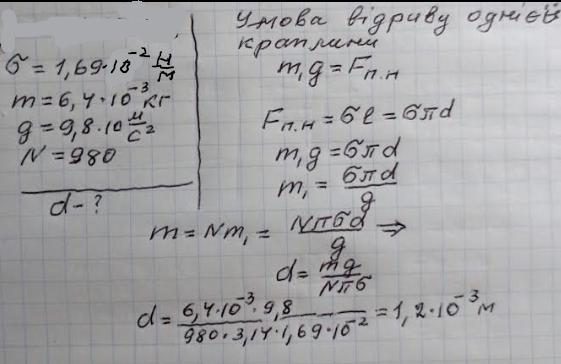 σ = 1,69·10⁻² Н/м
m = 6,4·10⁻³ кг
g = 9,8·10 м/с²
N = 980
d - ?
Умова відриву однієї
краплини
m₁g = Fп.н
Fп.н = σl = σπd
m₁g = σπd
m₁ = σπd/g
m = Nm₁ = Nπσd/g ⇒
d = mg/Nπσ
d = 6,4·10⁻³·9,8/980·3,14·1,69·10⁻² = 1,2·10⁻³ м